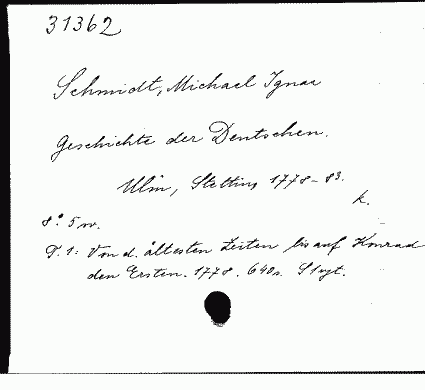 31362
Schmidt, Michael Ignaz
Geschichte der Deutschen.
Ulm, Stettin, 1778-83.
k.
8° 5 w.
T. 1: Von d. ältesten Zeiten bis auf Konrad
den Ersten. 1778. 640 s.